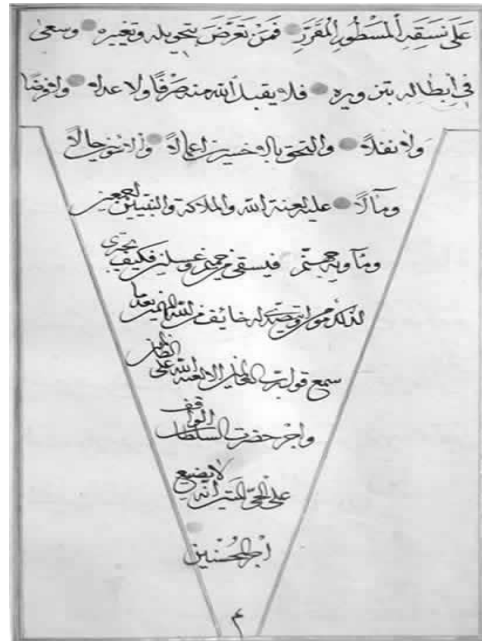 على نسقه المسطور المقرر فمن تعرض بتحويله وتغييره وسعى
في ابطاله بتزويره فلا يقبل الله منه صرفا ولا عدلا ولا فرضا
ولا نفلا والتحق بالاخسرين اعمالا حالا
ومآلا عليه لعنة الله والملائكة والنبيين اجمعين
جهنم فيسقى من حميم وغسلين فكيف يجترى
لذلك خايف من الله بعدما
سمع قول رب العالمين الا لعنة الله على الظالمين
واجر حضرت السلطان الواقف
على الحي المتين انه لا يضيع
اجر المحسنين
م